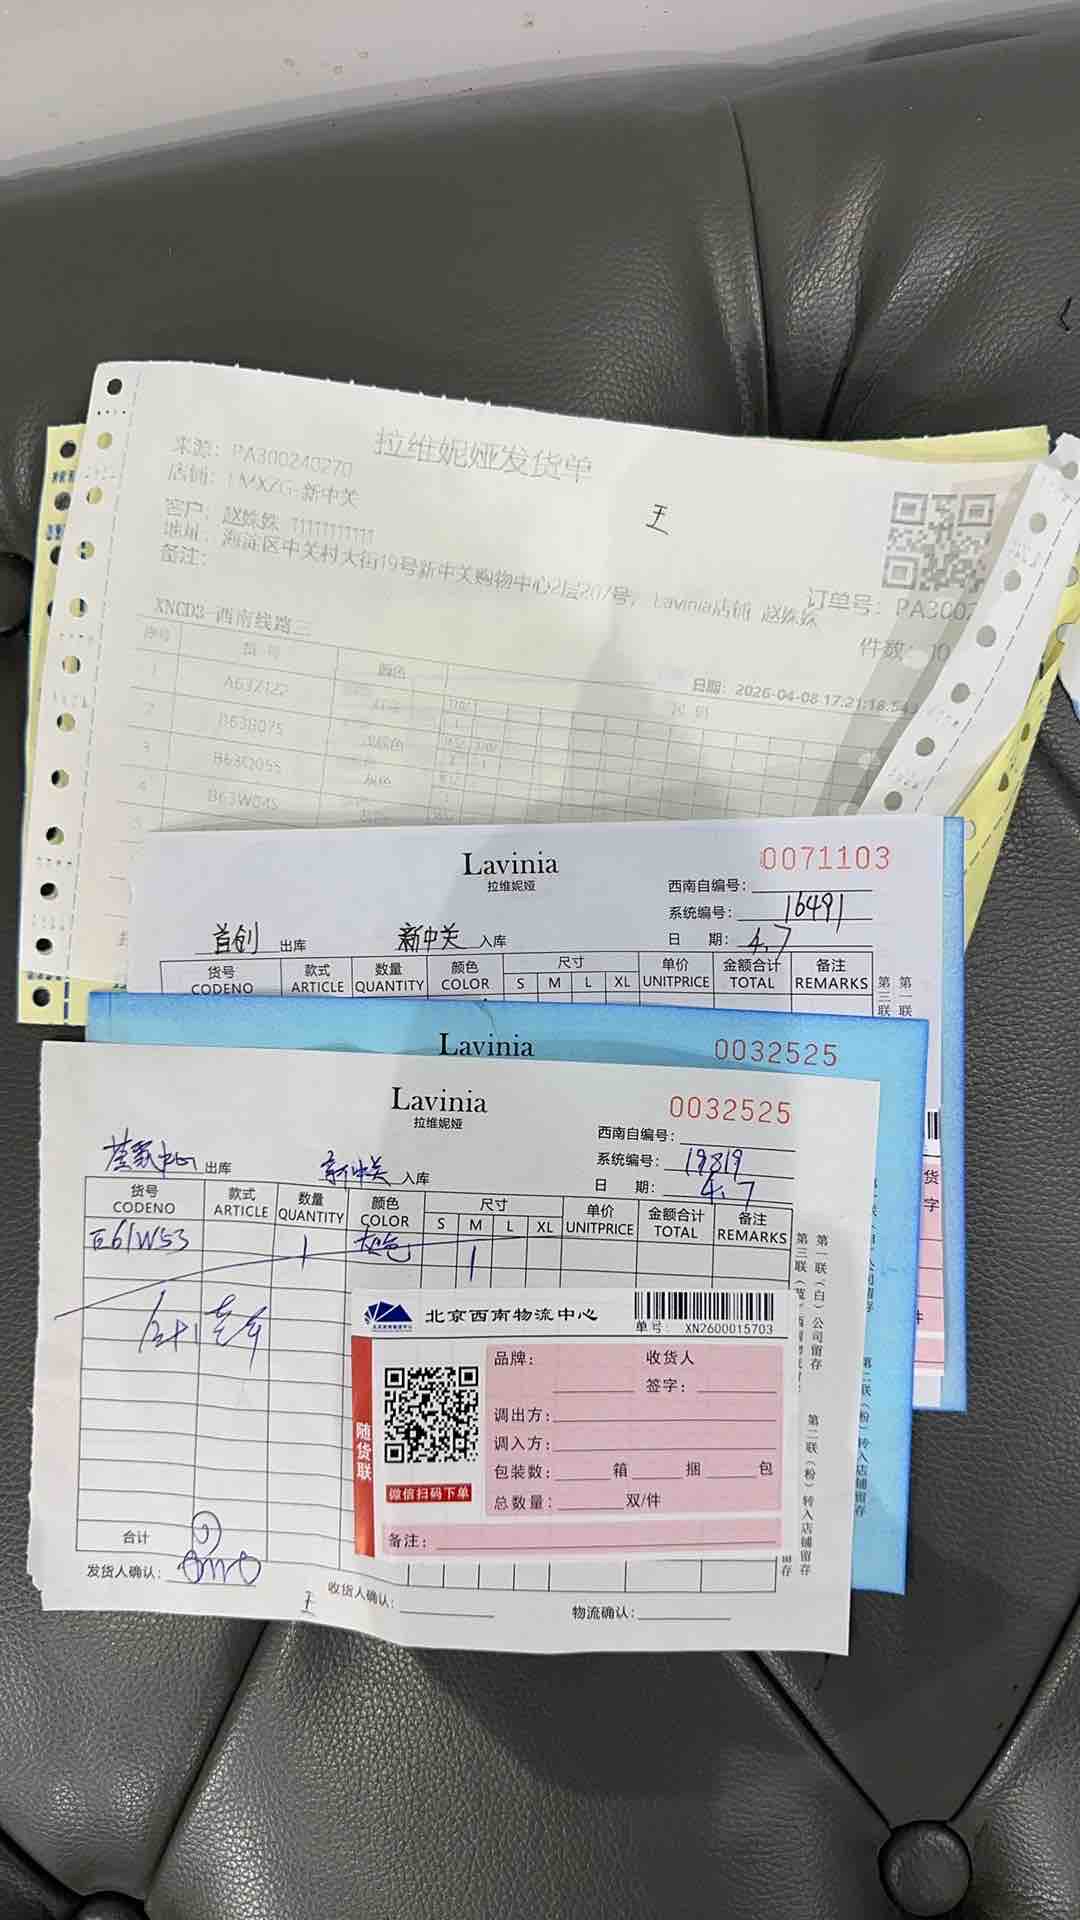 拉维妮娅发货单
来源：PA300240270
店铺：LMXZG-新中关
王
客户：赵姝姝 11111111111
地址：海淀区中关村大街19号新中关购物中心2层207号，Lavinia店铺 赵姝姝
备注：
订单号：PA3002
件数：10
XNCD2-西南线路三
日期：2026-04-08 17:21:18.54
序号 货号 颜色 尺码
1 A63Z122
2 B63B075
3 B63Q055 灰色
4 B63W045
Lavinia
拉维妮娅
0071103
西南自编号：
系统编号：16491
首创 出库 新中关 入库
日 期：4.7
货号 款式 数量 颜色 尺寸 单价 金额合计 备注
CODENO ARTICLE QUANTITY COLOR S M L XL UNITPRICE TOTAL REMARKS
Lavinia
0032525
Lavinia
拉维妮娅
0032525
西南自编号：
系统编号：19819
出库 新中关 入库
日 期：4.7
货号 款式 数量 颜色 尺寸 单价 金额合计 备注
CODENO ARTICLE QUANTITY COLOR S M L XL UNITPRICE TOTAL REMARKS
E61W53 1 灰色 1
北京西南物流中心
单号： XN2600015703
品牌： 收货人
签字：
调出方：
调入方：
包装数： 箱 捆 包
总数量： 双/件
备注：
随货联
微信扫码下单
合计
发货人确认：
收货人确认：
物流确认：
王
第一联（白）公司留存
第二联（粉）转入店铺留存